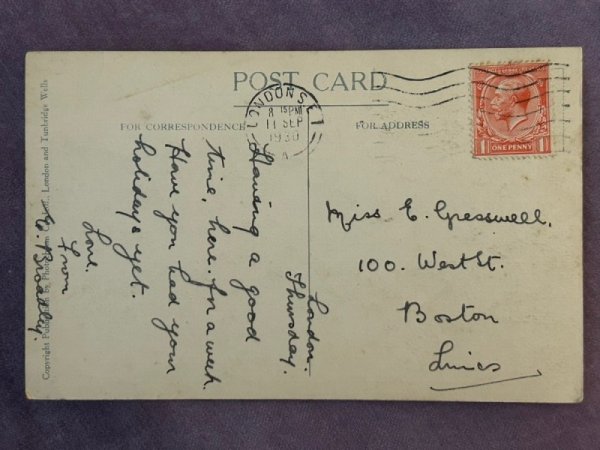 POST CARD
FOR CORRESPONDENCE
FOR ADDRESS
LONDON S.E.1
8 15 PM
11 SEP
1930
A
ONE PENNY
London.
Thursday.
Having a good
time, here. for a week.
Have you had your
holidays yet.
Love.
From
Miss E. Gresswell.
100. West St.
Boston
Lincs
Copyright Publication by Photochrom Co. Ltd., London and Tunbridge Wells